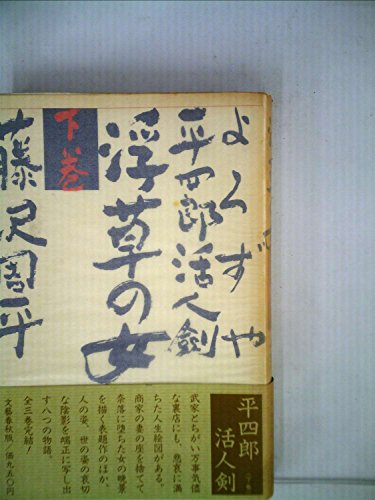 よろずや
平四郎活人剣
浮草の女
下巻
藤沢周平
平四郎
活人剣
武家とちがい万事気儘
な裏店にも、悲哀に満
ちた人生絵図がある。
商家の妻の座を捨てて、
奈落に堕ちた女の晩景
を描く表題作のほか、
人の姿、世の姿の哀切
な陰影を端正に写し出
す八つの物語。
全三巻完結!
文藝春秋版/価九五〇円